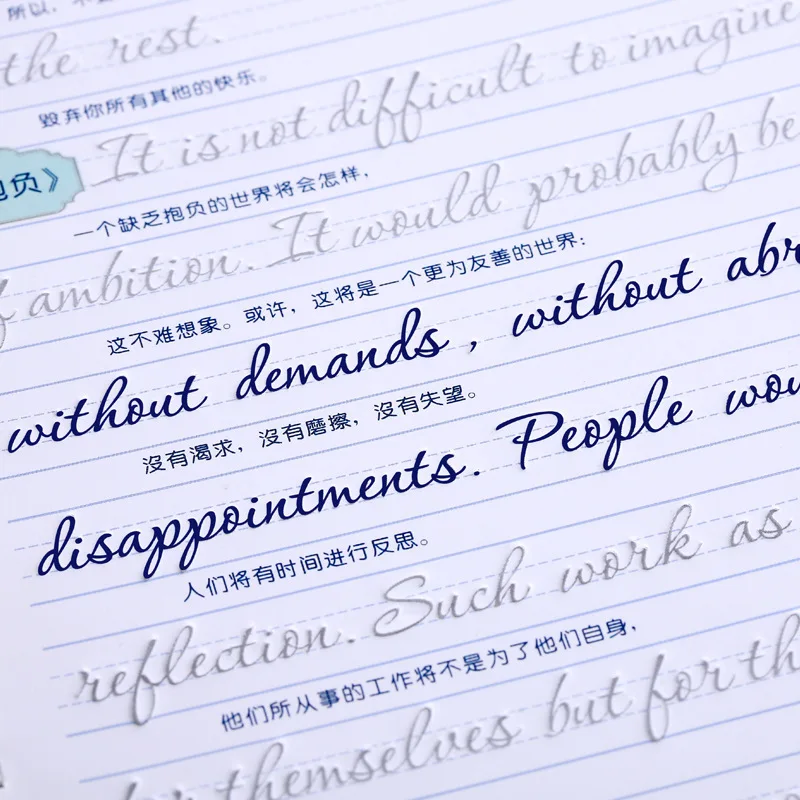 所以，不
the rest.
毁弃你所有其他的快乐。
抱负》
It is not difficult to imagine
一个缺乏抱负的世界将会怎样，
f ambition. It would probably be
这不难想象。或许，这将是一个更为友善的世界：
without demands, without abr
沒有渴求，沒有磨擦，沒有失望。
disappointments. People wou
人们将有时间进行反思。
reflection. Such work as
他们所从事的工作将不是为了他们自身，
for themselves but for th